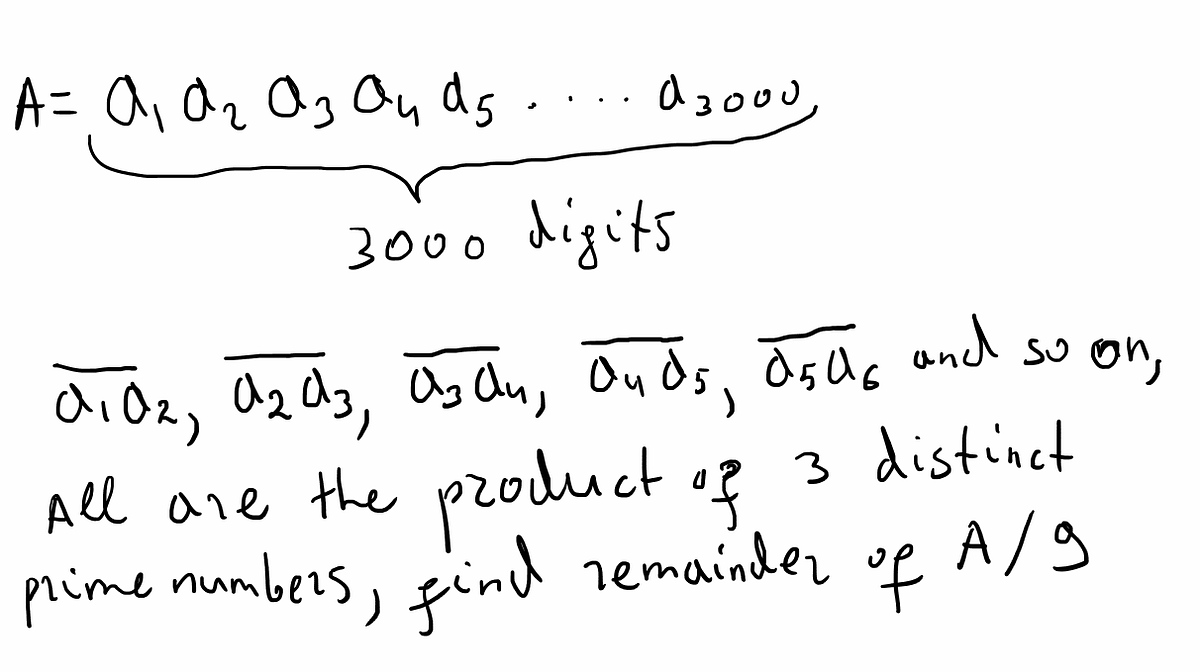 A= a₁ a₂ a₃ a₄ a₅ ..... a₃₀₀₀,
3000 digits
a₁a₂, a₂a₃, a₃a₄, a₄a₅, a₅a₆ and so on,
All are the product of 3 distinct
prime numbers, find remainder of A/9